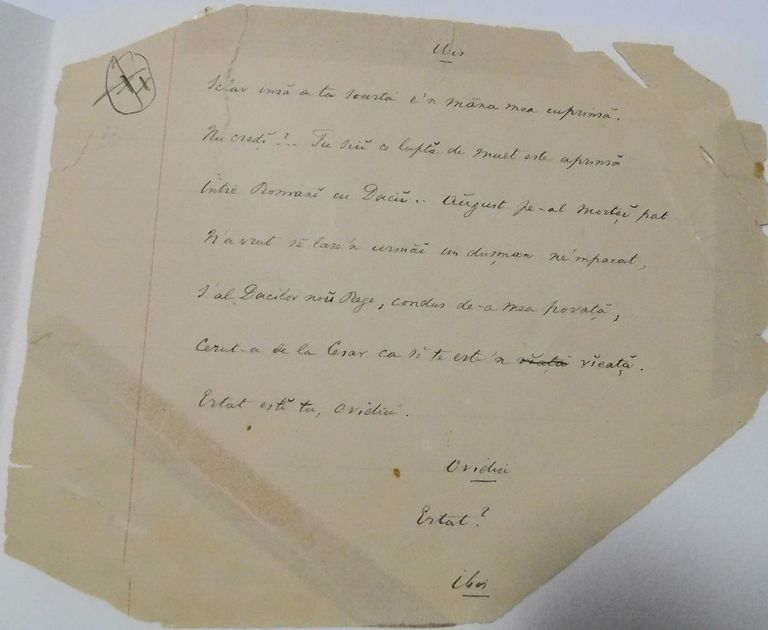 Ibis
Ș'ar însă a ta soartă e'n mâna mea cuprinsă.
Nu credĭ?... Tu sciĭ ce luptă de mult este aprinsă
Între Romanĭ cu Daciĭ.. August pe-al morțeĭ pat
N'a vrut să lase'n urmăĭ un dușman ne'mpacat,
Ș'al Dacilor noŭ Rege, condus de-a mea povață,
Cerut-a de la Cesar ca să te erte'n viéță.
Ertat eștĭ tu, Ovidiu.
Ovidiu
Ertat?
Ibis